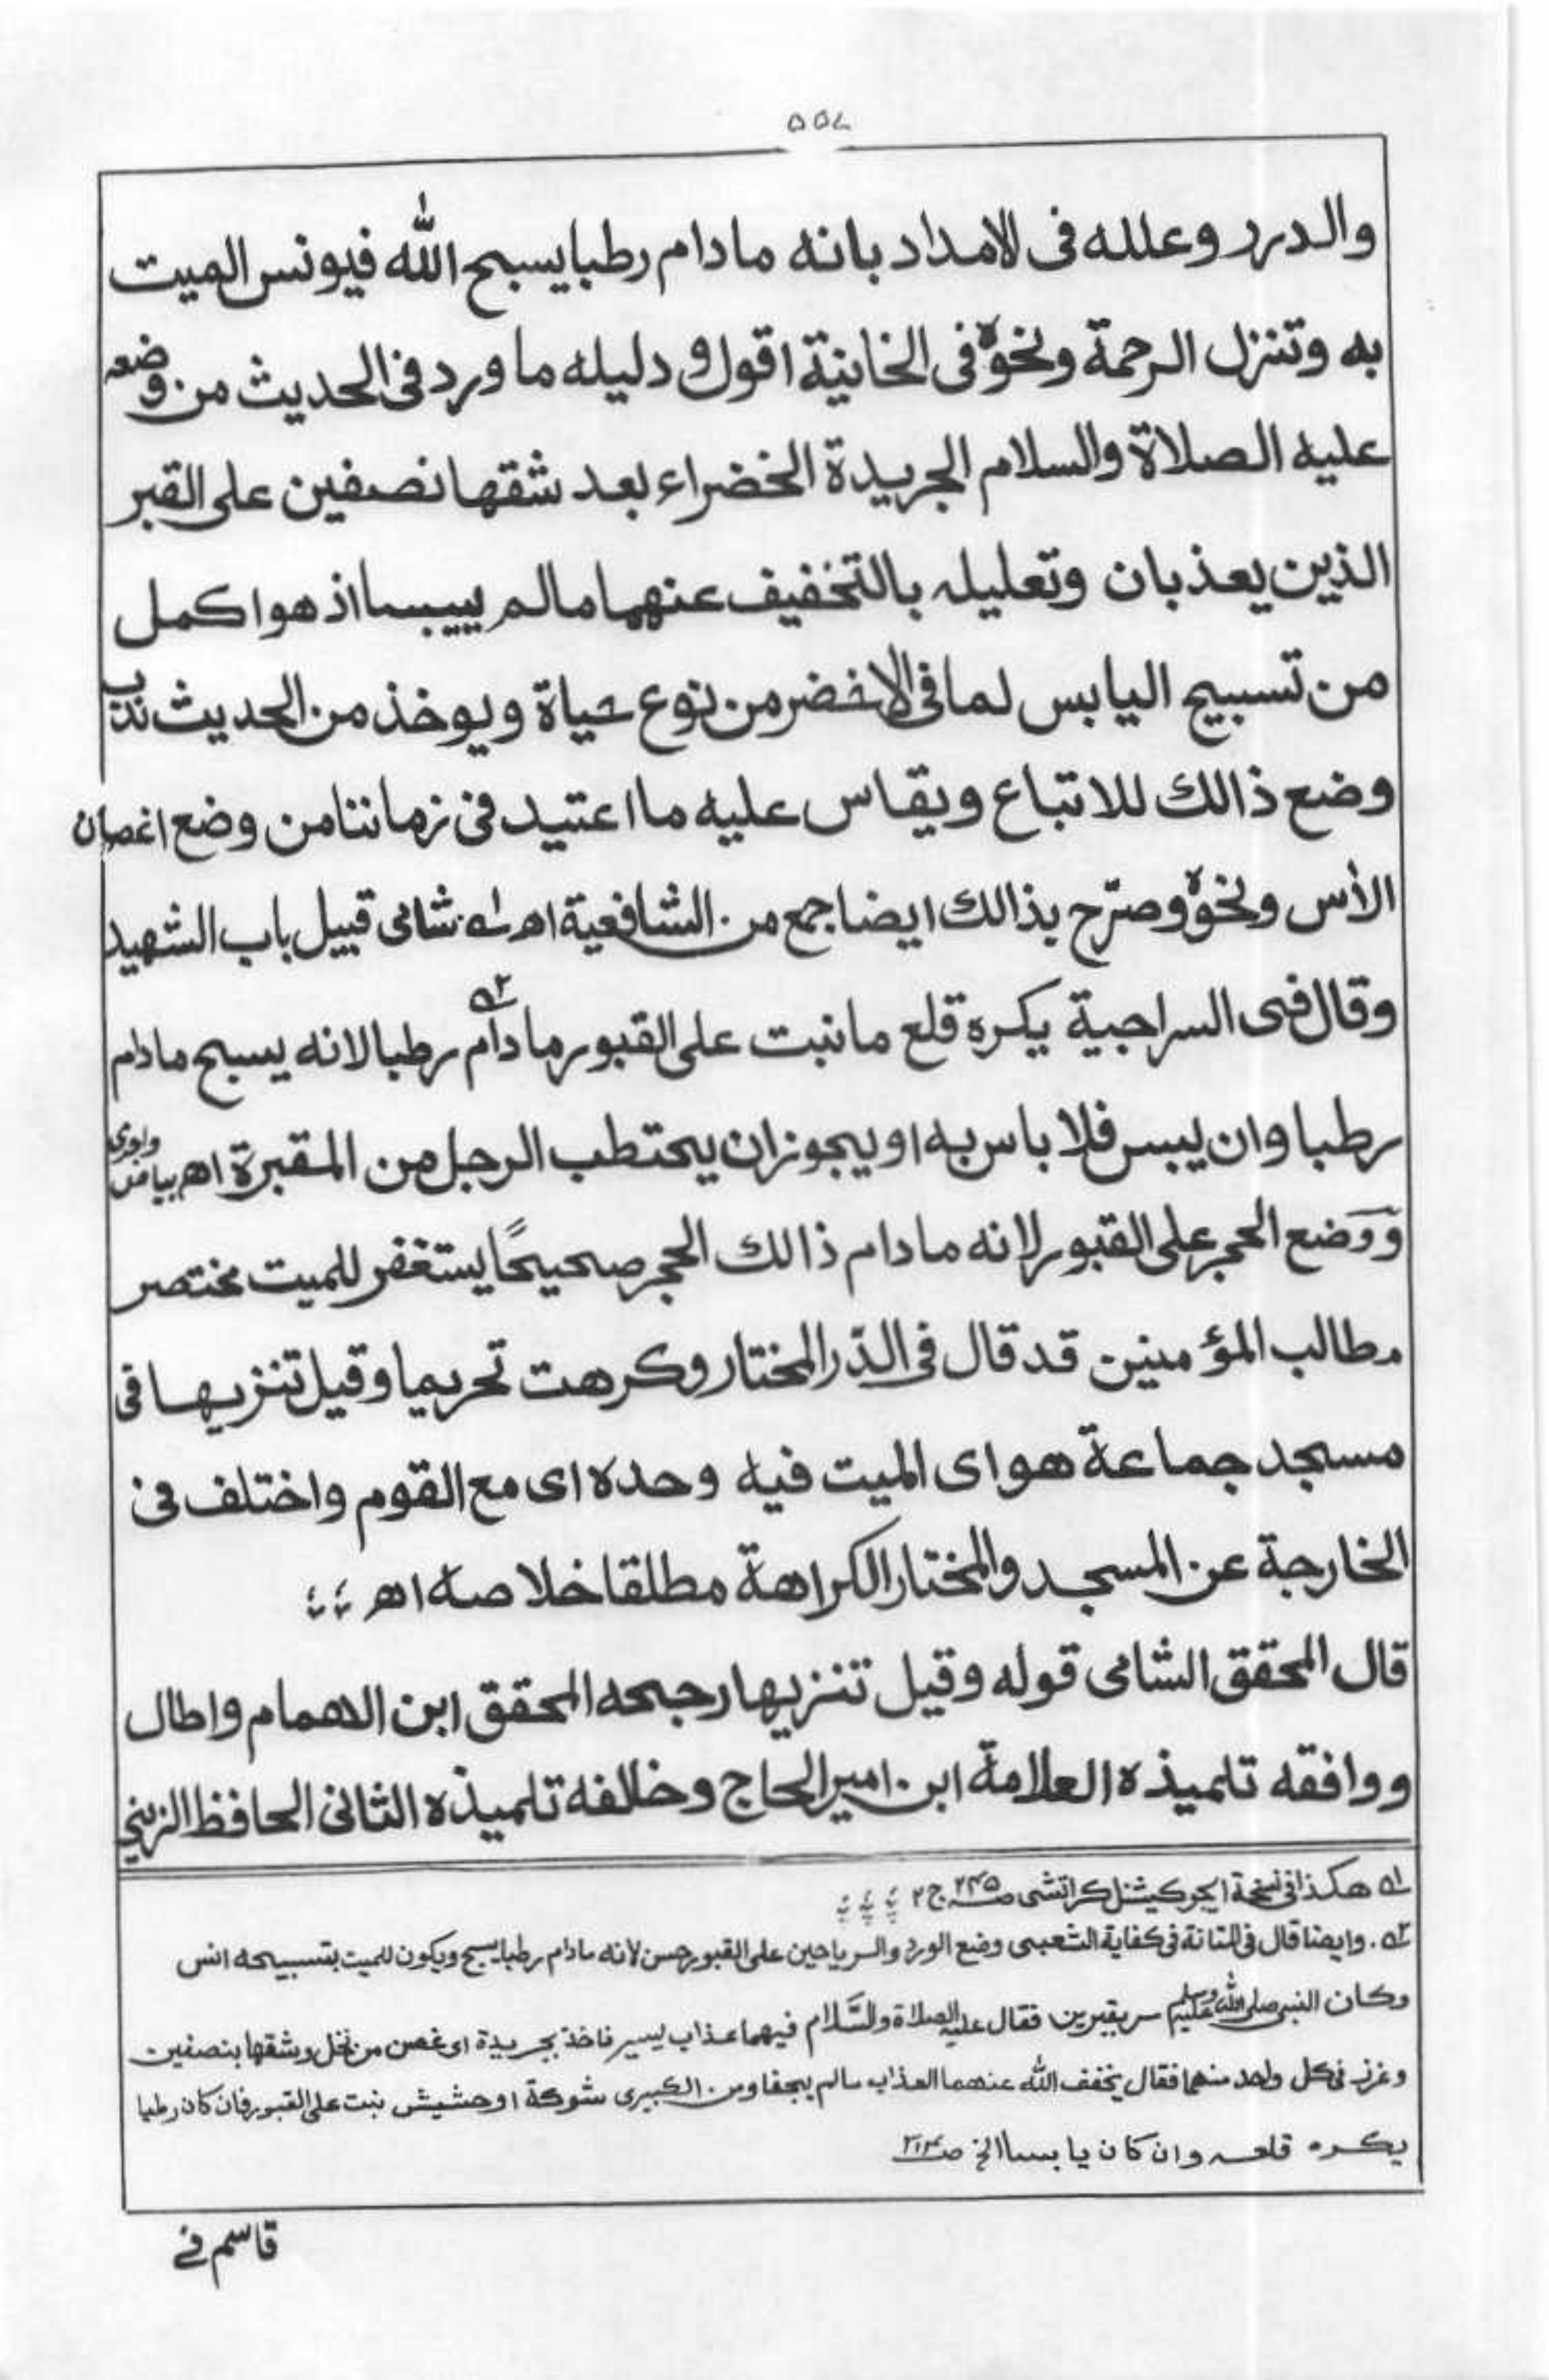 والدرر وعلله فى الامداد بانه مادام رطبا يسبح الله فيونس الميت
به وتنزل الرحمة ونحوه فى الخانية اقول و دليله ما ورد فى الحديث من وضعه
عليه الصلاة والسلام الجريدة الخضراء بعد شقها نصفين على القبر
الذين يعذبان وتعليله بالتخفيف عنهما مالم ييبسا اذ هو اكمل
من تسبيح اليابس لما فى الاخضر من نوع حياة ويوخذ من الحديث ندب
وضع ذالك للاتباع ويقاس عليه ما اعتيد فى زماننا من وضع اغصان
الأس ونحوه وصرّح بذالك ايضا جمع من الشافعية اھ لـه شامى قبيل باب الشهيد
وقال فى السراجية يكره قلع ما نبت على القبور ما دام رطبا لانه يسبح مادام
رطبا وان يبس فلا باس به او يجوز ان يحتطب الرجل من المقبرة اھ بياض واجرى
ووضع الحجر على القبور لانه مادام ذالك الحجر صحيحًا يستغفر للميت مختصر
مطالب المؤمنين قد قال فى الدّر المختار وكرهت تحريما وقيل تنزيها فى
مسجد جماعة هو اى الميت فيه وحده اى مع القوم واختلف فى
الخارجة عن المسجد والمختار الكراهة مطلقا خلاصه اھ
قال المحقق الشامى قوله وقيل تنزيها رجحه المحقق ابن الاهمام واطال
ووافقه تلميذه العلامة ابن امير الحاج وخالفه تلميذه الثانى الحافظ الزينى
لـه هكذا فى نسخة ايجوكيشنل كراتشى صـ ۲۴۵ ج ۲
۲ـه. وايضا قال فى المتانة فى كفاية الشعبى وضع الورد والرياحين على القبور حسن لانه مادام رطبا يسبح ويكون للميت بتسبيحه انس
وكان النبى صلى الله عليه وسلم سر بقبرين فقال عليه الصلاة والسَّلام فيهما عذاب يسير فاخذ بجريدة اى غصن من نخل وشقها بنصفين
وغرز فى كل واحد منهما فقال يخفف الله عنهما العذاب مالم يجفا ومن الكبيرى شوكة او حشيش نبت على القبور فان كان رطبا
يكره قلعه وان كان يابسا الخ صـ
قاسم فے